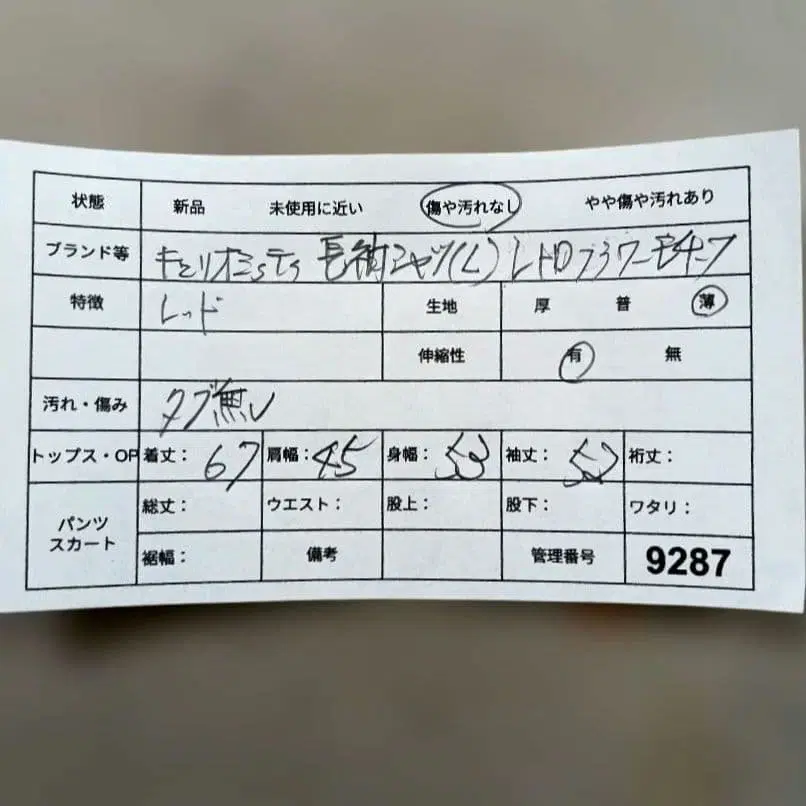 状態 新品 未使用に近い 傷や汚れなし やや傷や汚れあり
ブランド等 キュリオシティ 長袖シャツ(L) レトロフラワーモチーフ
特徴 レッド 生地 厚 普 薄
伸縮性 有 無
汚れ・傷み タブ無し
トップス・OP 着丈: 67 肩幅: 45 身幅: 53 袖丈: 52 裄丈:
パンツ スカート
総丈: ウエスト: 股上: 股下: ワタリ:
裾幅: 備考 管理番号 9287